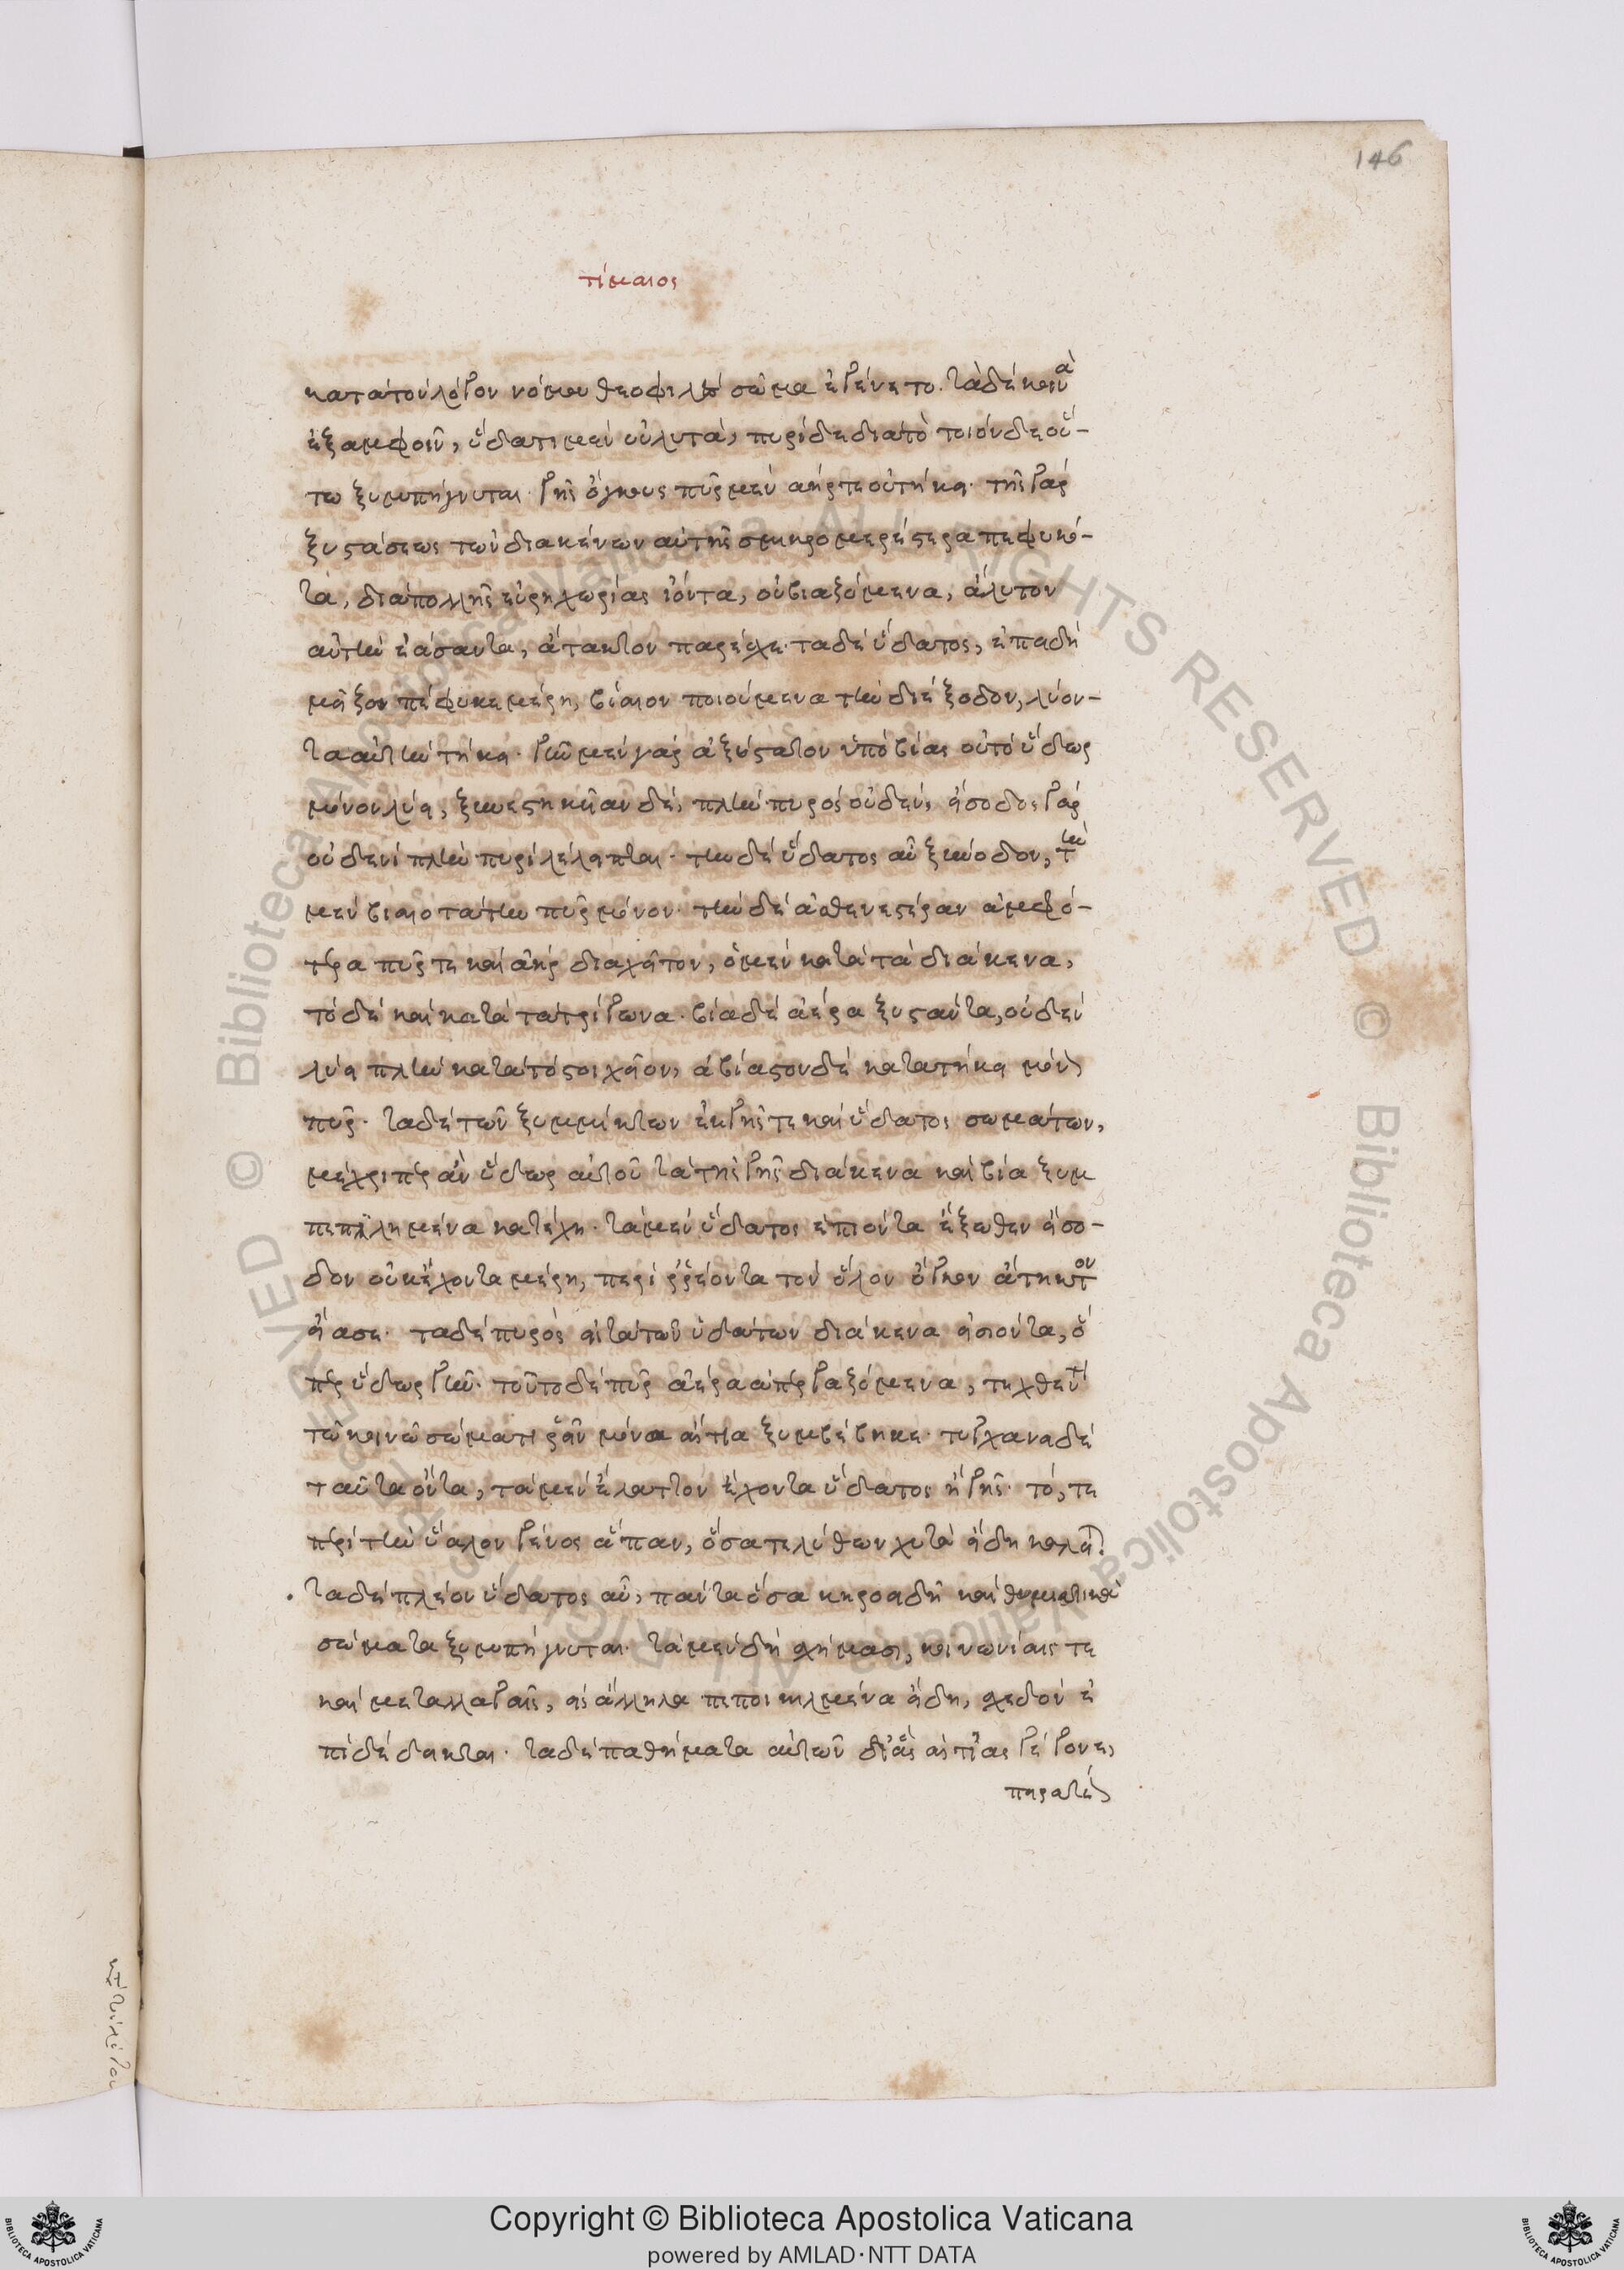 146
τίμαιος
κατὰ τὸν λόγον νόμου θεοφιλὲς σῶμα ἐγένετο. τὰ δὲ κοινὰ
ἐξ ἀμφοῖν, ὕδατι μὲν οὐ λυτὰ, πυρὶ δὲ διὰ τὸ τοιόνδε οὕ-
τω ξυμπήγνυται. γῆς ὄγκους πῦρ μὲν ἀήρ τε οὐ τήκει. τῆς γὰρ
ξυστάσεως τῶν διακένων αὐτῆς σμικρομερέστερα πεφυκό-
τα, διὰ πολλῆς εὐρηχωρίας ἰόντα, οὐ βιαζόμενα, ἄλυτον
αὐτὴν ἐάσαντα, ἄτακτον παρέχει. τὰ δὲ ὕδατος, ἐπειδὴ
μείζον πέφυκε μέρη, βίαιον ποιούμενα τὴν διέξοδον, λύον-
τα αὐτὴν τήκει. γῆν μὲν γὰρ ἀξύστατον ὑπὸ βίας οὐτὸ ὕδωρ
μόνον λύει, ξυνεστηκεῖαν δὲ, πλὴν πυρὸς οὐδὲν, εἴσοδος γὰρ
οὐδενὶ πλὴν πυρὶ λέλειπται. τὴν δὲ ὕδατος αὖ ξυνοδον, τὴν
μὲν βιαιοτάτην πῦρ μόνον. τὴν δὲ ἀσθενεστέραν ἀμφό-
τερα πῦρ τε καὶ ἀὴρ διαχεῖτον, ὁ μὲν κατὰ τὰ διάκενα,
τὸ δὲ καὶ κατὰ τὰ τρίγωνα. βία δὲ ἀέρα ξυσταντα, οὐδὲν
λύει πλὴν κατὰ τὸ στοιχεῖον, ἀβίαστον δὲ κατατήκει μόνον
πῦρ. τὰ δὲ τῶν ξυμμίκτων ἐκ γῆς τε καὶ ὕδατος σωμάτων,
μέχριπερ ἂν ὕδωρ αὐτοῦ τὰ τῆς γῆς διάκενα καὶ βία ξυμ
πεπιλημένα κατέχῃ. τὰ μὲν ὕδατος ἐπιόντα ἔξωθεν εἴσο-
δον οὐκ ἔχοντα μέρη, περιῤῥέοντα τὸν ὅλον ὄγκον ἄτηκτον
εἴασε. τὰ δὲ πυρὸς εἰς τὰ τῶν ὑδάτων διάκενα εἰσιόντα, ὅ
περ ὕδωρ γῆν. τοῦτο δὲ πῦρ ἀέρα ἀπεργαζόμενα, τηχθέντι
τῷ κοινῷ σώματι ῥεῖν μόνα αἴτια ξυμβέβηκε. τυγχάνει δὲ
ταῦτα ὄντα, τὰ μὲν ἔλαττον ἔχοντα ὕδατος ἢ γῆς. τό, τε
περὶ τὴν ὕαλον γένος ἅπαν, ὅσα τε λίθων χυτὰ εἴδη καλεῖται.
τὰ δὲ πλέον ὕδατος αὖ, πάντα ὅσα κηροειδῆ καὶ θυμιατικὰ
σώματα ξυμπήγνυται. τὰ μὲν δὴ σχήμασι, κοινωνίαις τε
καὶ μεταλλαγαῖς, εἰς ἄλληλα πεποικιλμένα εἴδη, σχεδὸν ἐ
πιδέδεικται. τὰ δὲ παθήματα αὐτῶν δι' ἃς αἰτίας γέγονε,
πειρατέον